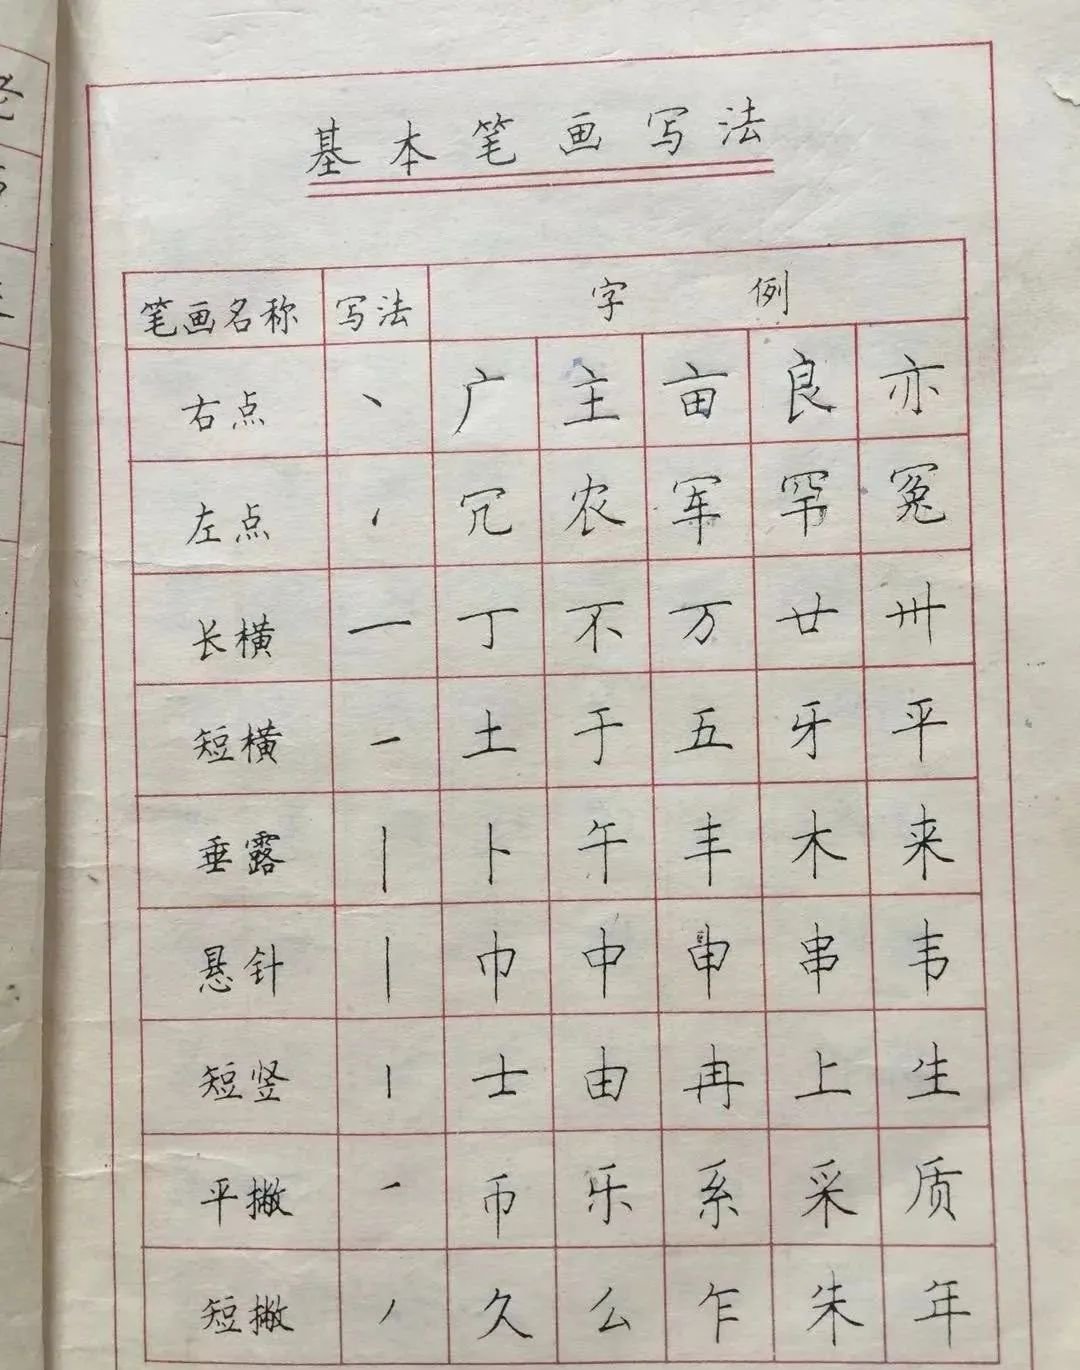 基本笔画写法
笔画名称 写法 字例
右点 丶 广 主 亩 良 亦
左点 冗 农 军 罕 冤
长横 一 丁 不 万 廿 卅
短横 一 土 于 五 牙 平
垂露 丨 卜 午 丰 木 来
悬针 丨 巾 中 申 串 韦
短竖 丨 士 由 冉 上 生
平撇 ㇒ 币 乐 系 采 质
短撇 丿 久 么 乍 朱 年